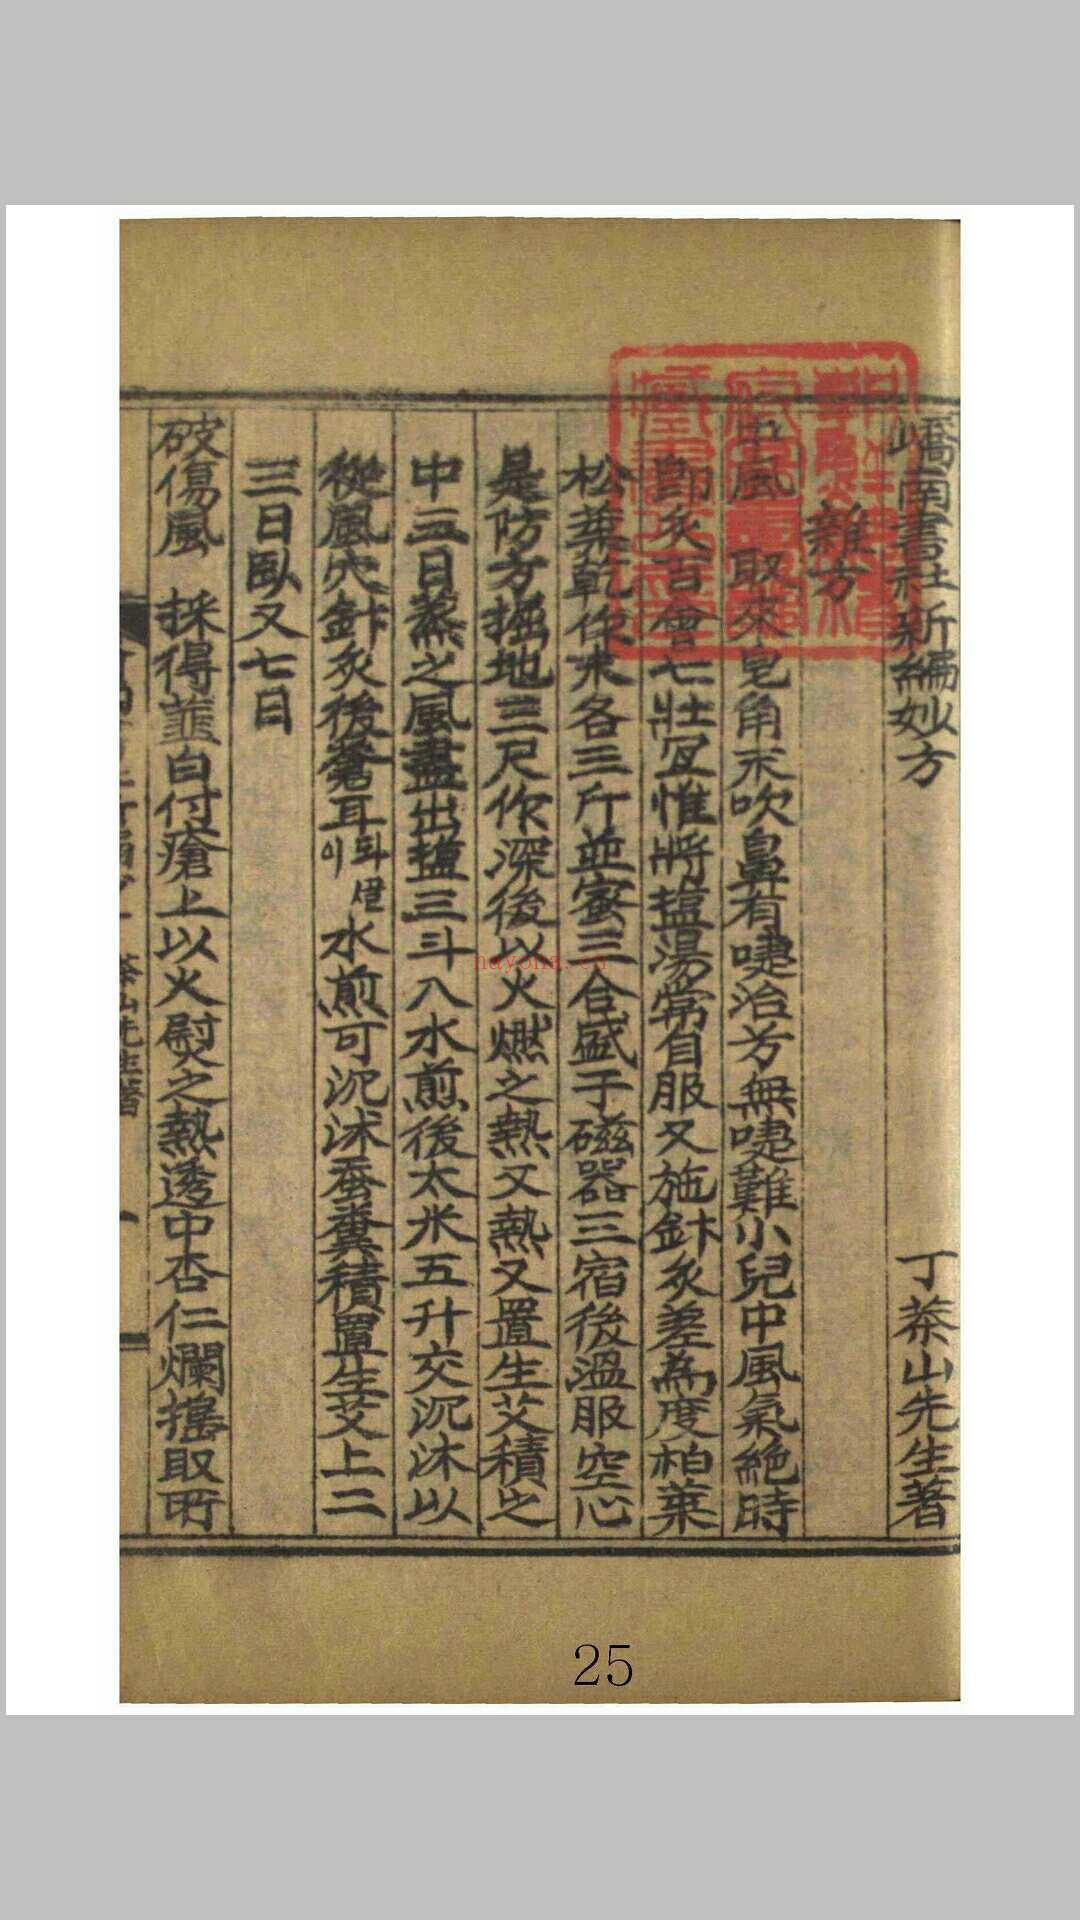 嶠南書社新編妙方 丁茶山先生著
雜方
中風 取來皂角末吹鼻有嚏治方無嚏難小兒中風氣絶時
即灸百會七壯宜惟將塩湯常自服又施針灸差為度柏葉
松葉乾作末各三斤並蜜三合盛于磁器三宿後溫服空心
是防方掘地三尺作深後以火燃之熱又熱又置生艾積之
中三日蒸之風盡出塩三斗入水煎後太米五升交沉沐以
從風穴針灸後蒼耳이 되 셑水煎可沉沐蚕糞積置生艾上二
三日臥又七日
破傷風 採得韮白付瘡上以火熨之熱透中杏仁爛搗取所
茶山先生著
nayona.cn
25